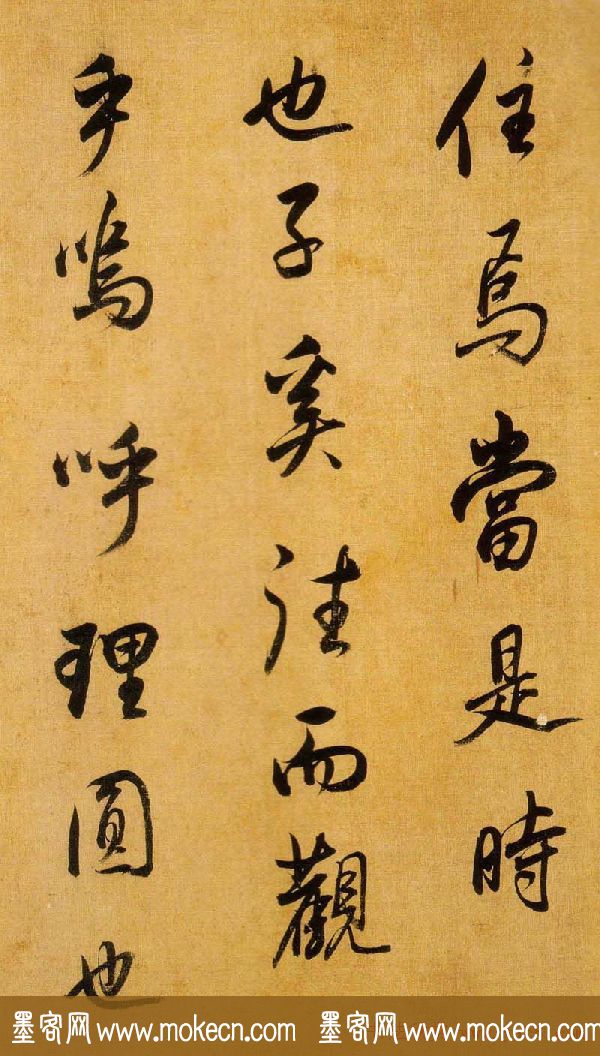 住焉當是時
也子奚往而觀
乎嗚呼理圓也
墨客网 www.mokecn.com 墨客网 www.mokecn.com